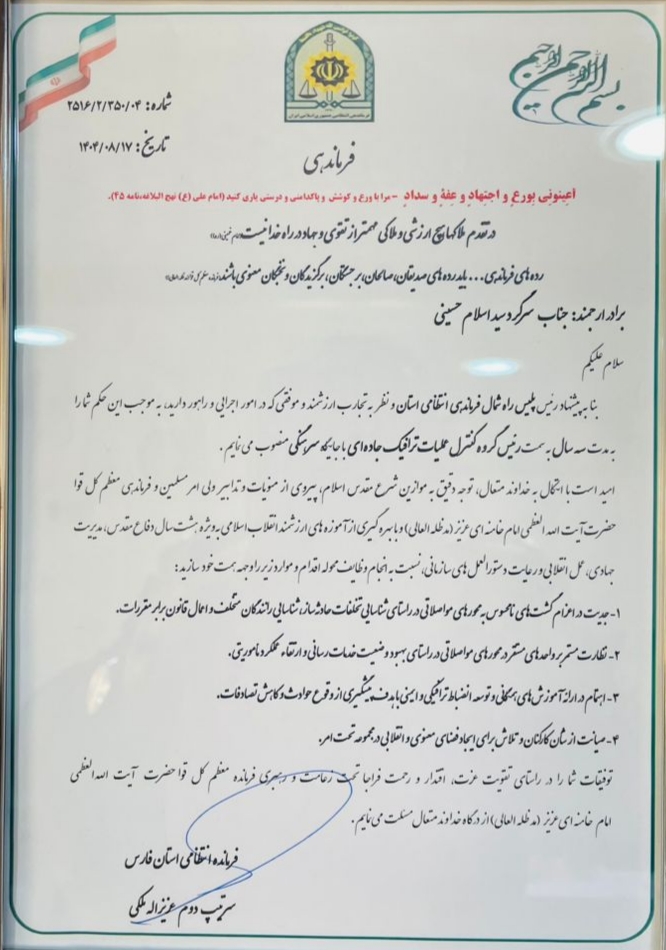 بسم الله الرحمن الرحیم
فرماندهی انتظامی جمهوری اسلامی ایران
شماره: ۲۵۱۶/۲/۳۵۰/۰۴
تاریخ: ۱۴۰۴/۰۸/۱۷
فرماندهی
أعینونی بورع و اجتهاد و عفة و سداد - مرا با ورع و کوشش و پاکدامنی و درستی یاری کنید (امام علی (ع) نهج البلاغه، نامه ۴۵).
در تقدم ملاکها هیچ ارزشی و ملاکی مهمتر از تقوی و جهاد در راه خدا نیست
رده های فرماندهی... باید رده های صدیقان، صالحان، برجستگان، برگزیدگان و نخبگان معنوی باشند
برادر ارجمند: جناب سرگرد سید اسلام حسینی
سلام علیکم
بنا به پیشنهاد رئیس پلیس راه شمال فرماندهی انتظامی استان و نظر به تجارب ارزشمند و موفقی که در امور اجرایی و راهور دارید، به موجب این حکم شما را
به مدت سه سال به سمت رئیس گروه کنترل عملیات ترافیک جاده ای با جایگاه سرهنگی منصوب می نمایم.
امید است با اتکال به خداوند متعال، توجه دقیق به موازین شرع مقدس اسلام، پیروی از منویات و تدابیر ولی امر مسلمین و فرماندهی معظم کل قوا
حضرت آیت الله العظمی امام خامنه ای عزیز (مدظله العالی) و با بهره گیری از آموزه های ارزشمند انقلاب اسلامی به ویژه هشت سال دفاع مقدس، مدیریت
جهادی، عمل انقلابی و رعایت دستورالعمل های سازمانی، نسبت به انجام وظایف محوله اقدام و موارد زیر را وجهه همت خود سازید:
۱- جدیت در اعزام گشت های نامحسوس به محورهای مواصلاتی در راستای شناسایی تخلفات حادثه ساز، شناسایی رانندگان متخلف و اعمال قانون برابر مقررات.
۲- نظارت مستمر بر واحدهای مستقر در محورهای مواصلاتی در راستای بهبود وضعیت خدمات رسانی و ارتقاء عملکرد ماموریتی.
۳- اهتمام در ارائه آموزش های همگانی و توسعه انضباط ترافیکی و ایمنی با هدف پیشگیری از وقوع حوادث و کاهش تصادفات.
۴- صیانت از شأن کارکنان و تلاش برای ایجاد فضای معنوی و انقلابی در مجموعه تحت امر.
توفیقات شما را در راستای تقویت عزت، اقتدار و رحمت فراجا تحت زعامت و رهبری فرمانده معظم کل قوا حضرت آیت الله العظمی
امام خامنه ای عزیز (مدظله العالی) از درگاه خداوند متعال مسئلت می نمایم.
فرمانده انتظامی استان فارس
سرتیپ دوم عزیزاله ملکی